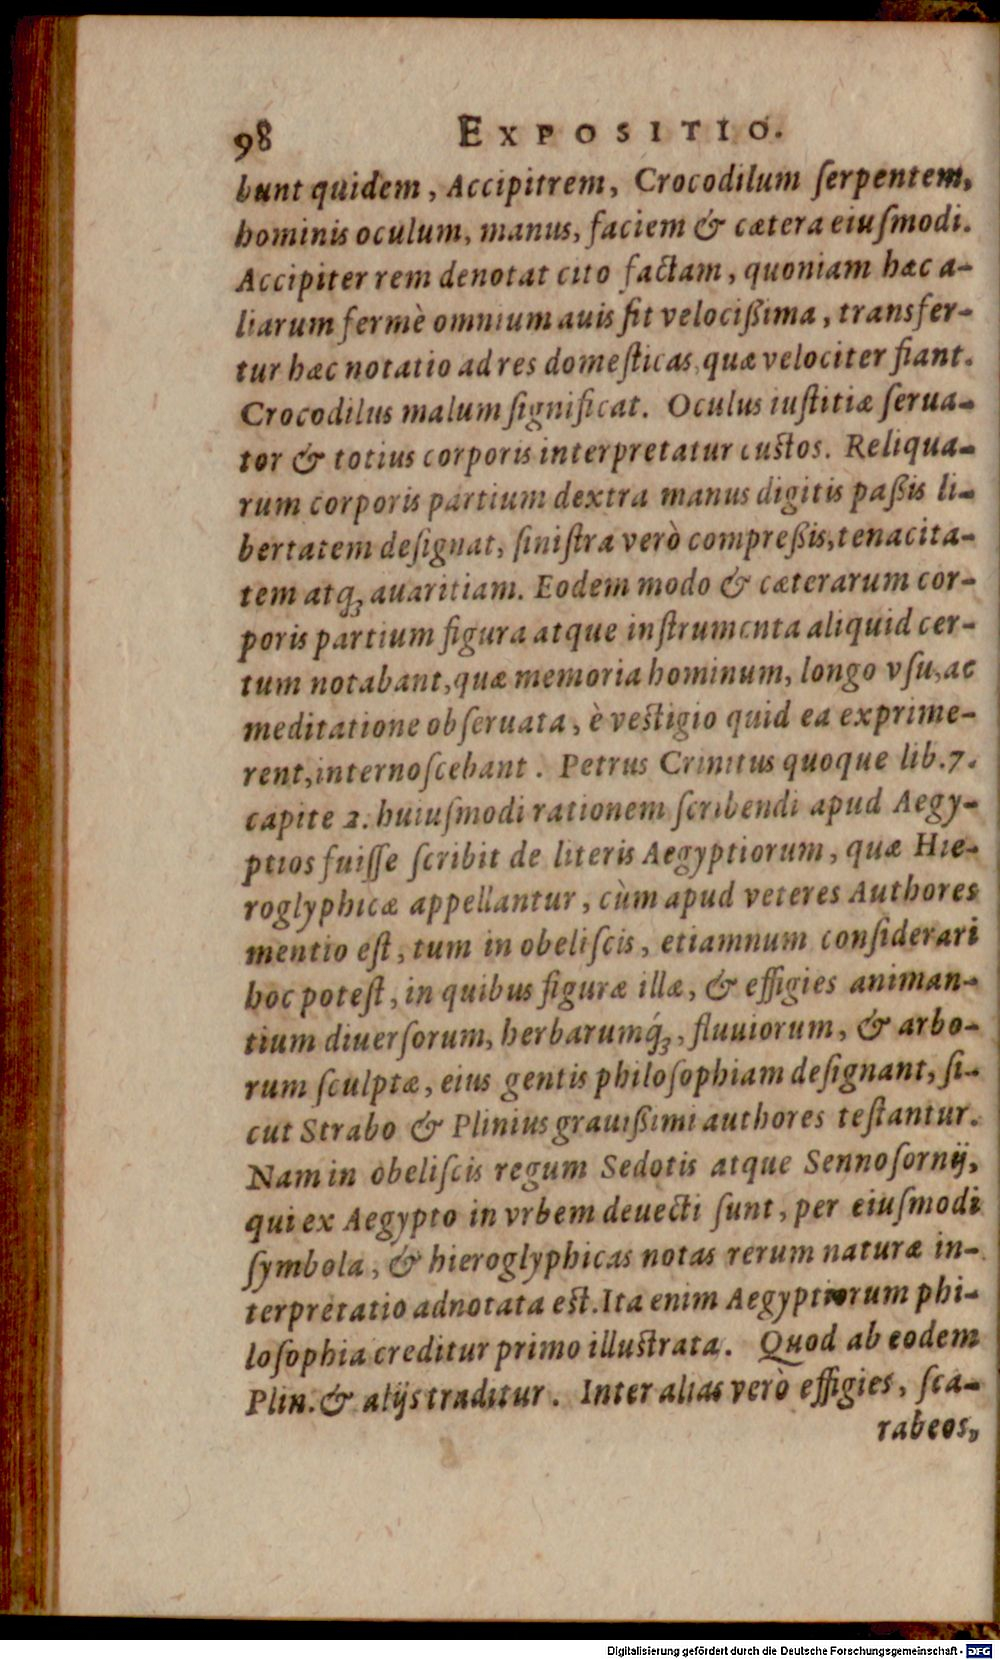 98 EXPOSITIO.
bunt quidem, Accipitrem, Crocodilum ſerpentem,
hominis oculum, manus, faciem & cætera eiuſmodi.
Accipiter rem denotat cito factam, quoniam hæc a-
liarum fermè omnium auis ſit velocißima, transfer-
tur hæc notatio ad res domeſticas, quæ velociter fiant.
Crocodilus malum ſignificat. Oculus iuſtitiæ ſerua-
tor & totius corporis interpretatur cuſtos. Reliqua-
rum corporis partium dextra manus digitis paßis li-
bertatem deſignat, ſiniſtra verò compreßis, tenacita-
tem atq́ꝫ auaritiam. Eodem modo & cæterarum cor-
poris partium figura atque inſtrumenta aliquid cer-
tum notabant, quæ memoria hominum, longo vſu, ac
meditatione obſeruata, è veſtigio quid ea exprime-
rent, internoſcebant. Petrus Crinitus quoque lib. 7.
capite 2. huiuſmodi rationem ſcribendi apud Aegy-
ptios fuiſſe ſcribit de literis Aegyptiorum, quæ Hie-
roglyphicæ appellantur, cùm apud veteres Authores
mentio eſt, tum in obeliſcis, etiamnum conſiderari
hoc poteſt, in quibus figuræ illæ, & effigies animan-
tium diuerſorum, herbarumq́ꝫ, fluuiorum, & arbo-
rum ſculptæ, eius gentis philoſophiam deſignant, ſi-
cut Strabo & Plinius grauißimi authores teſtantur.
Nam in obeliſcis regum Sedotis atque Sennoſornij,
qui ex Aegypto in vrbem deuecti ſunt, per eiuſmodi
ſymbola, & hieroglyphicas notas rerum naturæ in-
terpretatio adnotata eſt. Ita enim Aegyptiorum phi-
loſophia creditur primo illuſtrata. Quod ab eodem
Plin. & alijs traditur. Inter alias verò effigies, ſca-
rabeos,
Digitalisierung gefördert durch die Deutsche Forschungsgemeinschaft - DFG